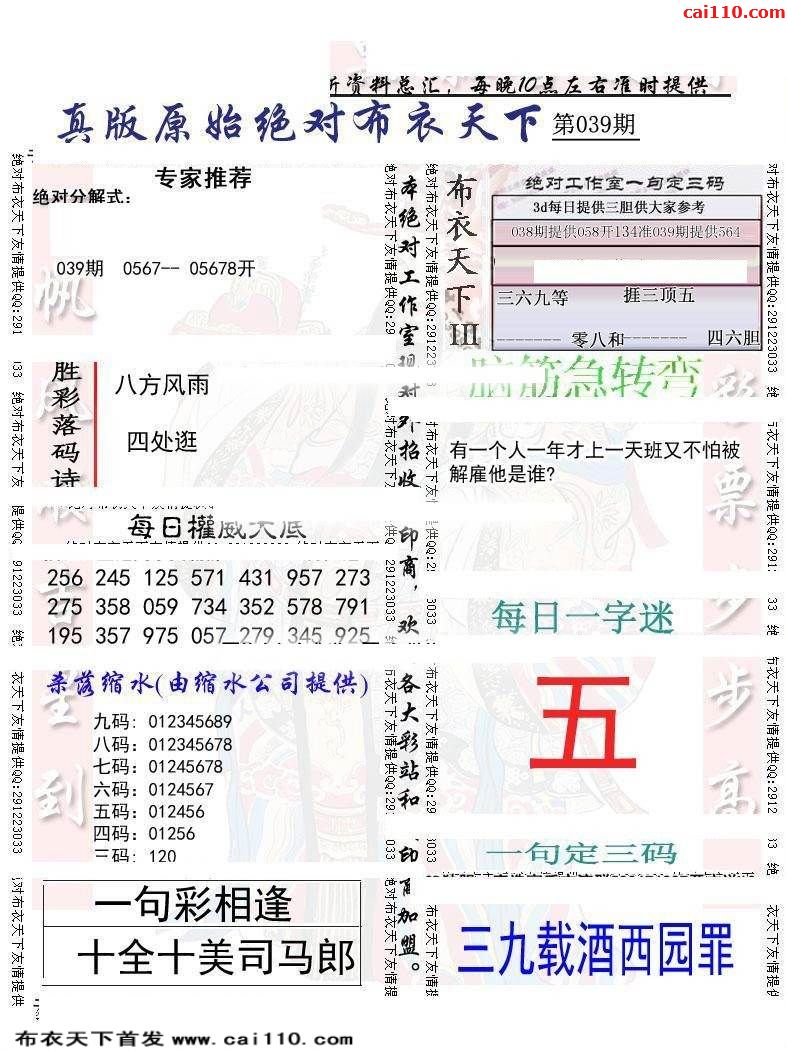 cai110.com
资料总汇，每晚10点左右准时提供
真版原始绝对布衣天下 第039期
专家推荐
绝对分解式：
039期 0567-- 05678开
布衣天下III
绝对工作室一句定三码
3d每日提供三胆供大家参考
038期提供058开134准039期提供564
三六九等 捱三顶五
-------- 零八和------- 四六胆
胜彩落码诗
八方风雨
四处逛
脑筋急转弯
有一个人一年才上一天班又不怕被
解雇他是谁?
每日權威大底
256 245 125 571 431 957 273
275 358 059 734 352 578 791
195 357 975 057 279 345 925
每日一字迷
五
杀落缩水(由缩水公司提供)
九码: 012345689
八码: 012345678
七码: 01245678
六码: 0124567
五码: 012456
四码: 01256
三码: 120
一句彩相逢
十全十美司马郎
一句定三码
三九载酒西园罪
本绝对工作室
招收
印商，欢
各大彩站和
加盟。
绝对布衣天下友情提供QQ:291
绝对布衣天下友情提供QQ:291223033
帆
风
顺
吉
星
到
彩
票
步
步
高
布衣天下首发 www.cai110.com